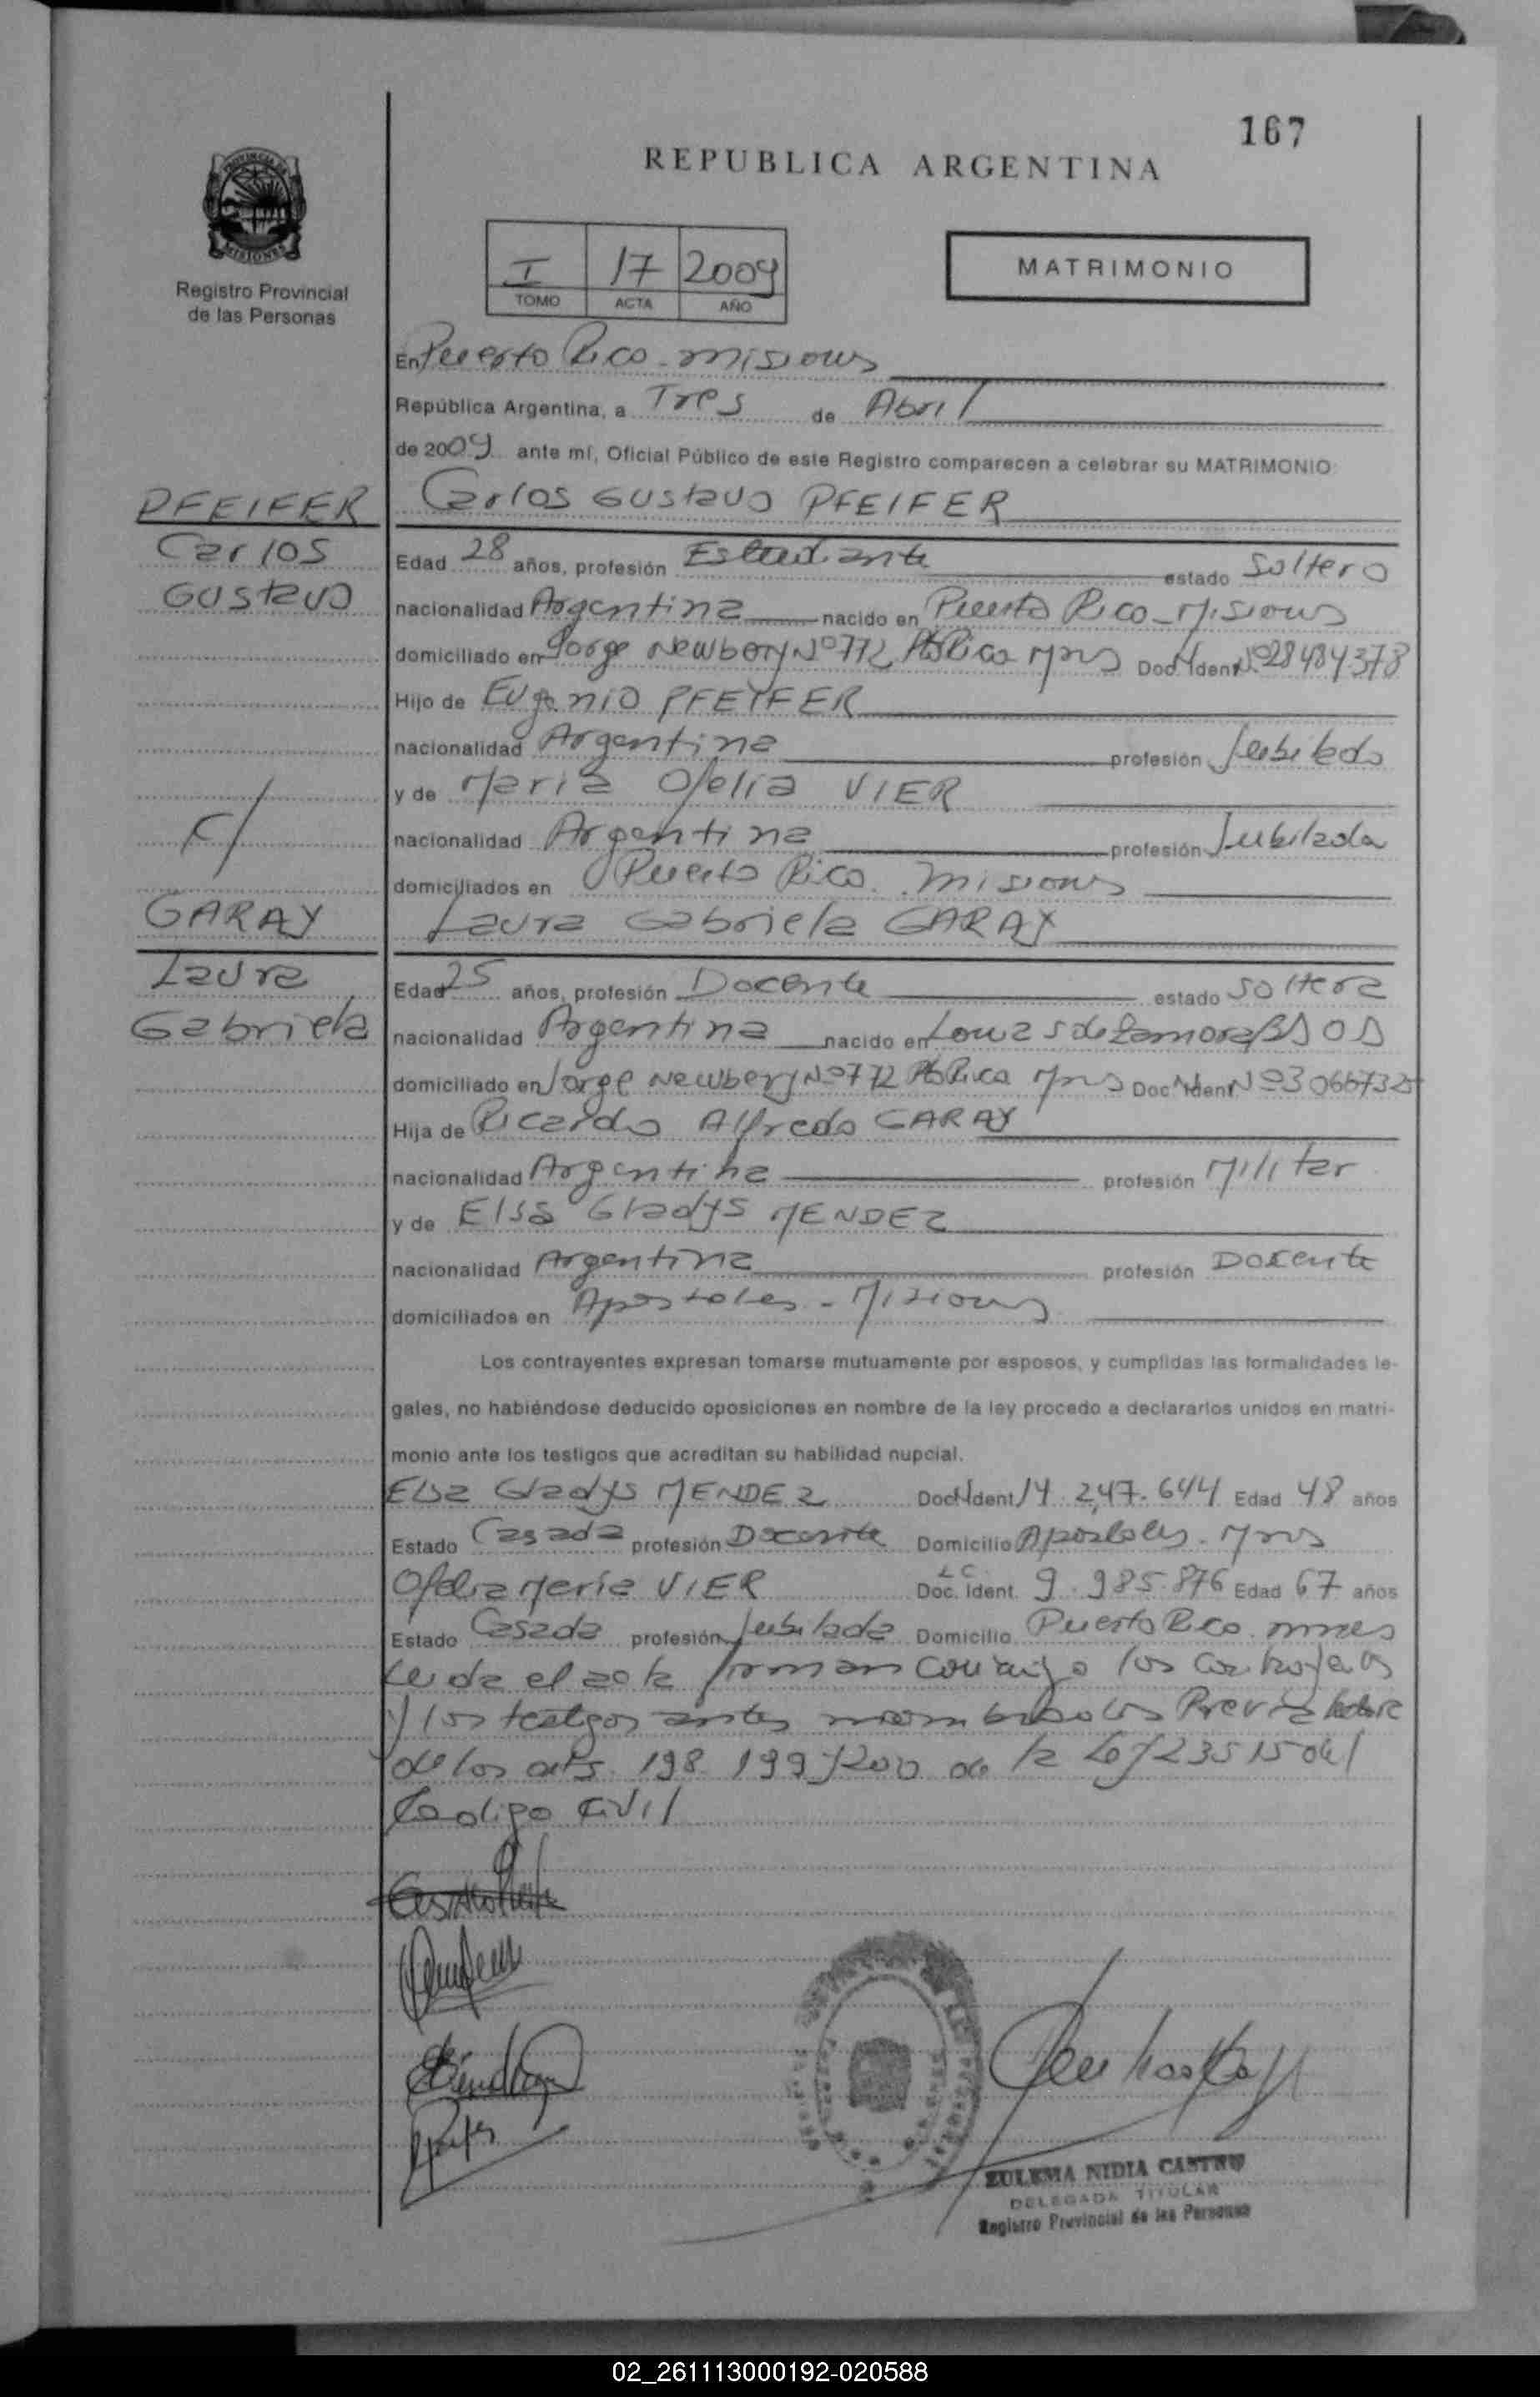 167
REPUBLICA ARGENTINA
PROVINCIA DE
MISIONES
Registro Provincial
de las Personas
I 17 2009
TOMO ACTA AÑO
MATRIMONIO
En Puerto Rico - misiones
República Argentina, a Tres de Abril
de 2009 ante mí, Oficial Público de este Registro comparecen a celebrar su MATRIMONIO:
PFEIFER
Carlos Gustavo PFEIFER
Carlos
Gustavo
Edad 28 años, profesión Estudiante estado Soltero
nacionalidad Argentina nacido en Puerto Rico - Misiones
domiciliado en Jorge Newbery Nº 772 Pto Rico Mnes Doc. Ident. Nº 28484378
Hijo de Eugenio PFEIFER
nacionalidad Argentina profesión Jubilado
y de Maria Ofelia VIER
c/
nacionalidad Argentina profesión Jubilada
domiciliados en Puerto Rico. Misiones
GARAY
Laura Gabriela GARAY
Laura
Gabriela
Edad 25 años, profesión Docente estado Soltera
nacionalidad Argentina nacido en Lomas de Zamora
domiciliado en Jorge Newbery Nº 772 Pto Rico Mnes Doc. Ident. Nº
Hija de Ricardo Alfredo GARAY
nacionalidad Argentina profesión Militar
y de Elsa Gladys MENDEZ
nacionalidad Argentina profesión Docente
domiciliados en Apostoles - Misiones
Los contrayentes expresan tomarse mutuamente por esposos, y cumplidas las formalidades le-
gales, no habiéndose deducido oposiciones en nombre de la ley procedo a declararlos unidos en matri-
monio ante los testigos que acreditan su habilidad nupcial.
Elsa Gladys MENDEZ Doc. Ident. 14.247.644 Edad 48 años
Estado Casada profesión Docente Domicilio Apostoles. Mnes
Ofelia Maria VIER LC Doc. Ident. 9.985.876 Edad 67 años
Estado Casada profesión Jubilada Domicilio Puerto Rico. mnes
Leida el acta firman conmigo los contrayentes
y los testigos antes nombrados Previa lectura
de los arts. 198 199 y 200 de la Ley 23515 del
Codigo Civil
ZULEMA NIDIA CASTRO
DELEGADA TITULAR
Registro Provincial de las Personas
02_261113000192-020588